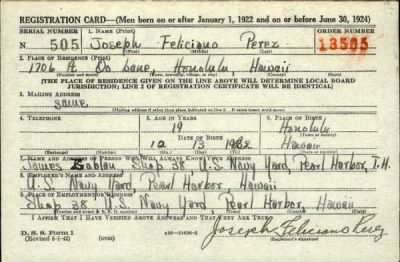 REGISTRATION CARD—(Men born on or after January 1, 1922 and on or before June 30, 1924)
SERIAL NUMBER 1. NAME (Print) ORDER NUMBER
N 505 Joseph Feliciano Perez 13505
(First) (Middle) (Last)
2. PLACE OF RESIDENCE (Print)
1706 A Lane, Honolulu Hawaii
(Number and street) (Town, township, village, or city) (County) (State)
[THE PLACE OF RESIDENCE GIVEN ON THE LINE ABOVE WILL DETERMINE LOCAL BOARD
JURISDICTION; LINE 2 OF REGISTRATION CERTIFICATE WILL BE IDENTICAL]
3. MAILING ADDRESS
same
[Mailing address if other than place indicated on line 2. If same insert word same]
4. TELEPHONE 5. AGE IN YEARS 6. PLACE OF BIRTH
19 Honolulu
(Town or county)
DATE OF BIRTH
12 13 1922 Hawaii
(Mo.) (Day) (Yr.) (State or country)
7. NAME AND ADDRESS OF PERSON WHO WILL ALWAYS KNOW YOUR ADDRESS
James Shop 38 U.S. Navy Yard, Pearl Harbor, T.H.
8. EMPLOYER'S NAME AND ADDRESS
U.S. Navy Yard, Pearl Harbor, Hawaii
9. PLACE OF EMPLOYMENT OR BUSINESS
Shop 38 U.S. Navy Yard Pearl Harbor, Hawaii
(Number and street or R. F. D. number) (Town) (County) (State)
I AFFIRM THAT I HAVE VERIFIED ABOVE ANSWERS AND THAT THEY ARE TRUE.
D. S. S. Form 1
(Revised 6-1-42) (over)
Joseph Feliciano Perez
(Registrant's signature)